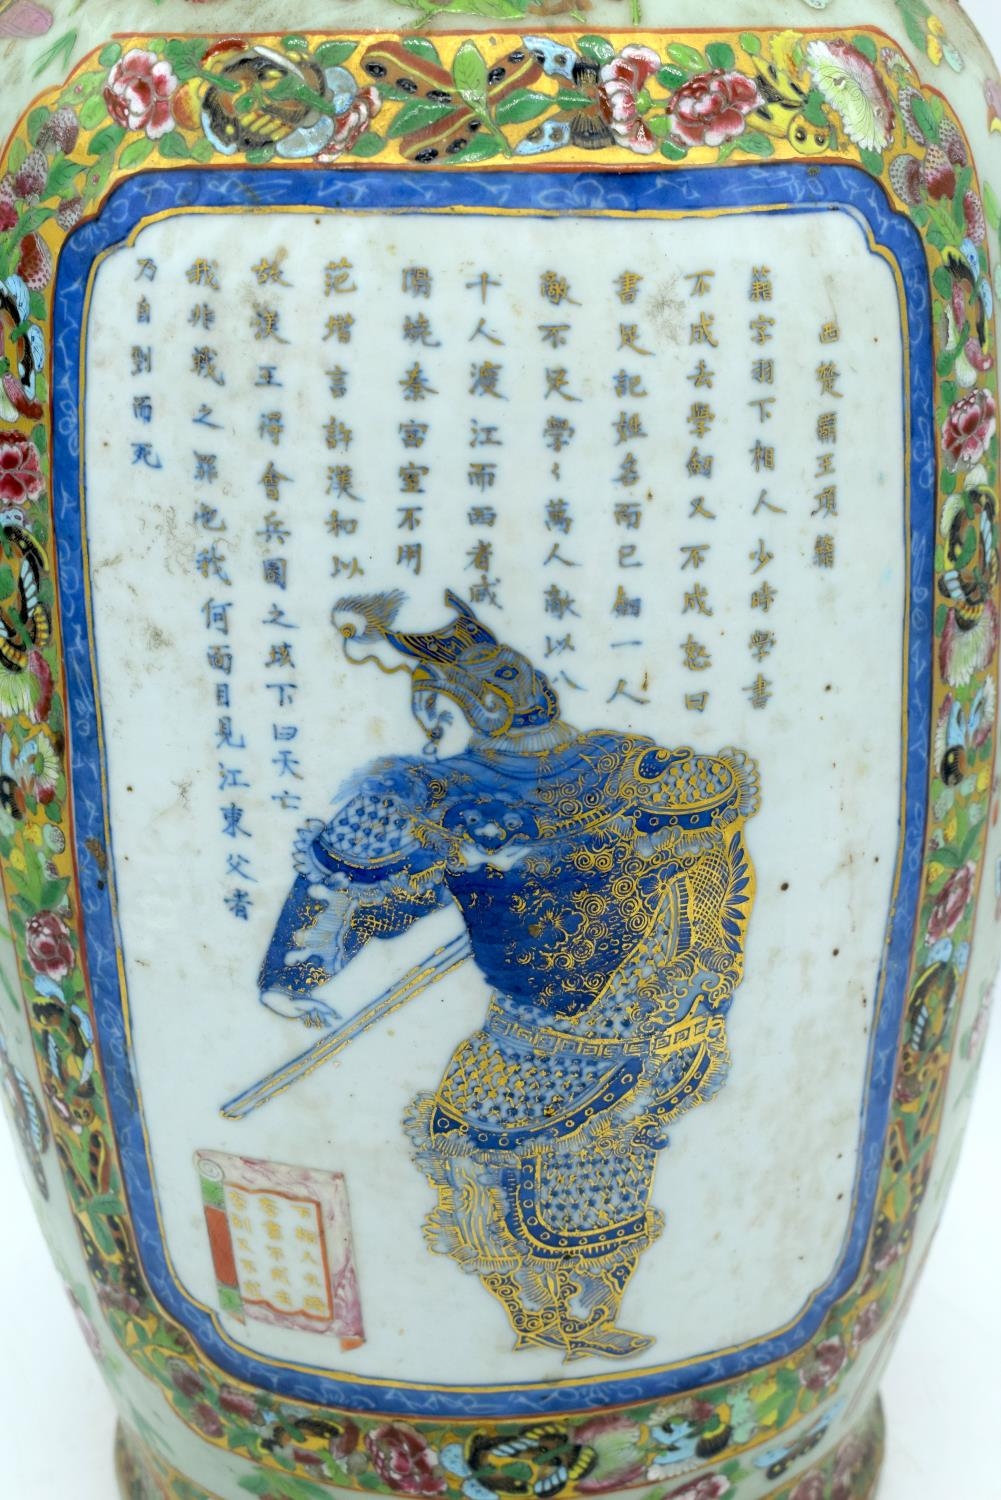 西楚霸王項籍
籍字羽下相人少時學書
不成去學劍又不成怒曰
書足記姓名而已劍一人
敵不足學〻萬人敵以八
千人渡江而西者咸
陽燒秦宮室不用
范增言許漢和以
故漢王得會兵圍之垓下曰天亡
我非戰之罪也我何面目見江東父老
乃自刎而死
下相人少時
學書不成去
學劍又不成